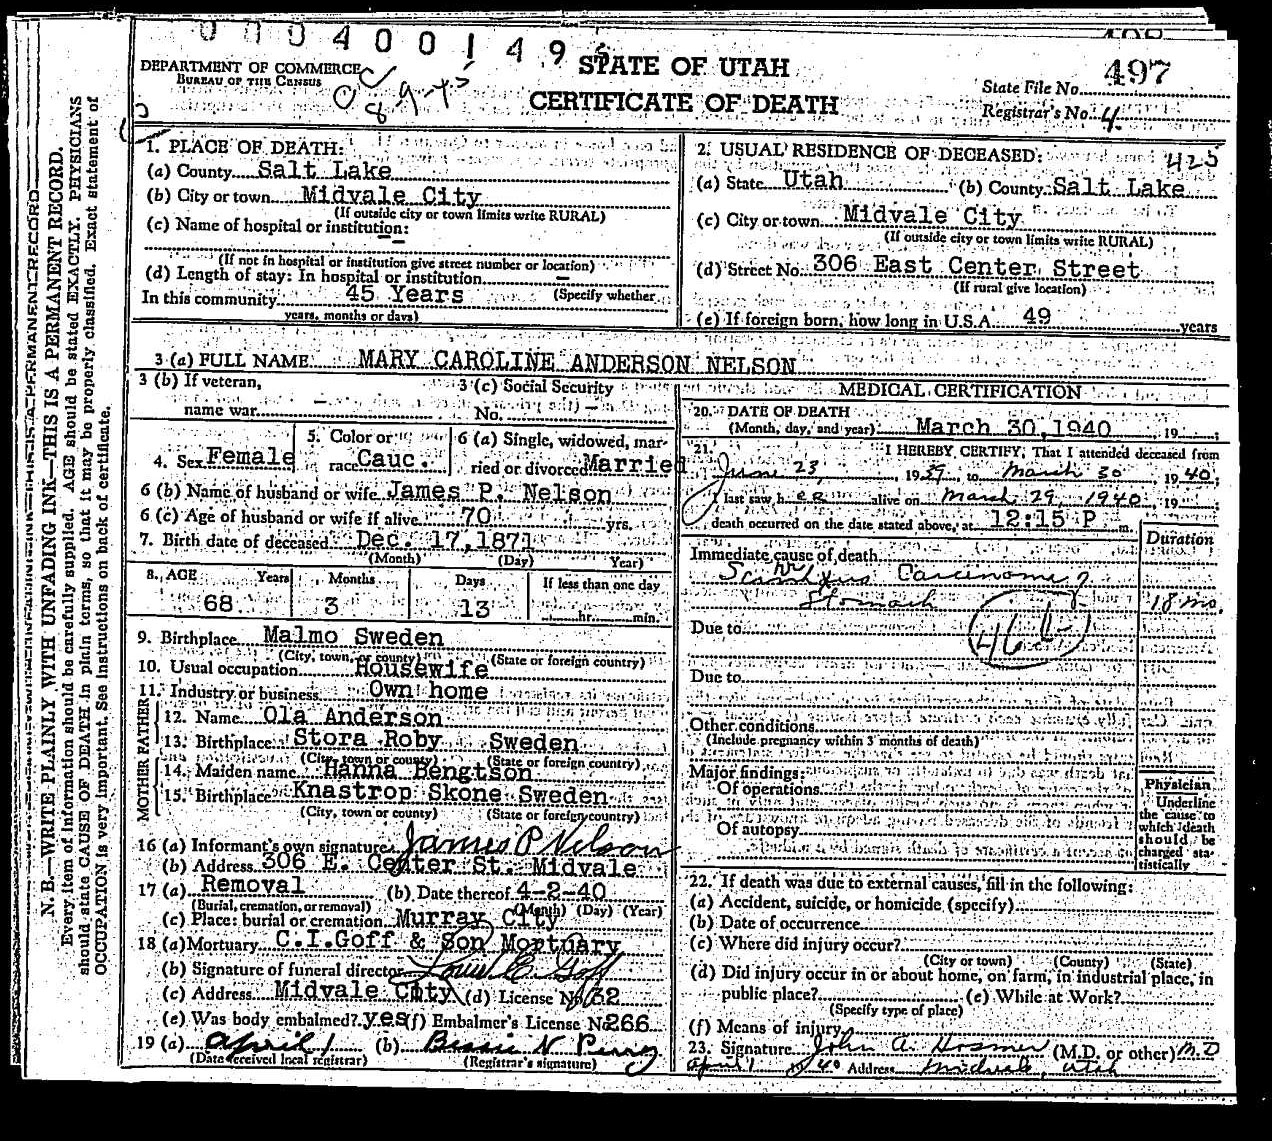 0004001495
DEPARTMENT OF COMMERCE
BUREAU OF THE CENSUS
8-9-45
STATE OF UTAH
CERTIFICATE OF DEATH
State File No. 497
Registrar's No. 4.
N. B.—WRITE PLAINLY WITH UNFADING INK—THIS IS A PERMANENT RECORD.
Every item of information should be carefully supplied. AGE should be stated EXACTLY. PHYSICIANS
should state CAUSE OF DEATH in plain terms, so that it may be properly classified. Exact statement of
OCCUPATION is very important. See instructions on back of certificate.
1. PLACE OF DEATH:
(a) County Salt Lake
(b) City or town Midvale City
(If outside city or town limits write RURAL)
(c) Name of hospital or institution:
(If not in hospital or institution give street number or location)
(d) Length of stay: In hospital or institution —
In this community 45 Years (Specify whether
years, months or days)
2. USUAL RESIDENCE OF DECEASED: 425
(a) State Utah (b) County Salt Lake
(c) City or town Midvale City
(If outside city or town limits write RURAL)
(d) Street No. 306 East Center Street
(If rural give location)
(e) If foreign born, how long in U.S.A. 49 years
3 (a) FULL NAME MARY CAROLINE ANDERSON NELSON
3 (b) If veteran, 3 (c) Social Security
name war — No. —
4. Sex Female 5. Color or race Cauc. 6 (a) Single, widowed, married or divorced Married
6 (b) Name of husband or wife James P. Nelson
6 (c) Age of husband or wife if alive 70 yrs.
7. Birth date of deceased Dec. 17,1871
(Month) (Day) Year)
8. AGE Years Months Days If less than one day
68 3 13 hr. min.
9. Birthplace Malmo Sweden
(City, town, or county) (State or foreign country)
10. Usual occupation Housewife
11. Industry or business Own home
FATHER
12. Name Ola Anderson
13. Birthplace Stora Roby Sweden
(City, town or county) (State or foreign country)
MOTHER
14. Maiden name Hanna Bengtson
15. Birthplace Knastrop Skone Sweden
(City, town or county) (State or foreign country)
16 (a) Informant's own signature James P Nelson
(b) Address 306 E. Center St. Midvale
17 (a) Removal (b) Date thereof 4-2-40
(Burial, cremation, or removal) (Month) (Day) (Year)
(c) Place: burial or cremation Murray City
18 (a) Mortuary C.I.Goff & Son Mortuary
(b) Signature of funeral director Goff
(c) Address Midvale City (d) License No.
(e) Was body embalmed? yes (f) Embalmer's License No 266
19 (a) April 1 (b) Bessie N Perry
(Date received local registrar) (Registrar's signature)
MEDICAL CERTIFICATION
20. DATE OF DEATH
(Month, day, and year) March 30,1940, 19
21. I HEREBY CERTIFY, That I attended deceased from
June 23, 1939, to March 30 1940;
I last saw her alive on March 29, 1940, 19
death occurred on the date stated above, at 12:15 P m.
Duration
Immediate cause of death
Scirrhus Carcinoma of
Stomach 18 mo.
Due to 46 b
Due to
Other conditions
(Include pregnancy within 3 months of death)
Major findings:
Of operations
Of autopsy
Physician
Underline
the cause to
which death
should be
charged sta-
tistically
22. If death was due to external causes, fill in the following:
(a) Accident, suicide, or homicide (specify)
(b) Date of occurrence
(c) Where did injury occur?
(City or town) (County) (State)
(d) Did injury occur in or about home, on farm, in industrial place, in
public place? (e) While at Work?
(Specify type of place)
(f) Means of injury
23. Signature John A. Hosmer (M.D. or other) M.D
April 1 1940 Address Midvale, Utah